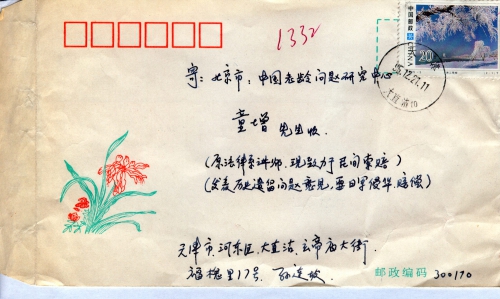 1332
中国邮政
20分
CHINA
95.12.27.11
寄：北京市，中国老龄问题研究中心
童增 先生收
（原法律系讲师，现致力于民间索赔）
（发表历史遗留问题意见，要日军侵华赔偿）
天津市，河东区，大直沽，关帝庙大街
福槐里17号
邮政编码 300170